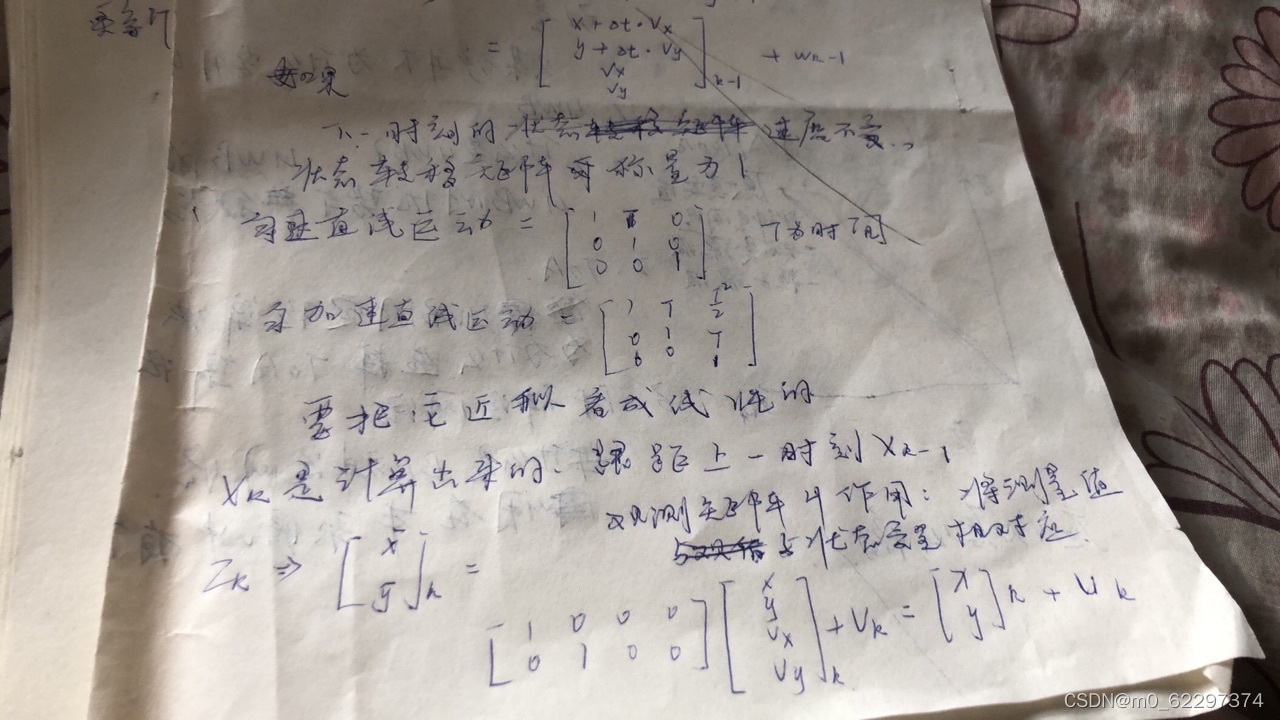 = [x+Δt·Vx
y+Δt·Vy
Vx
Vy]k-1 + wk-1
如果
下一时刻的状态 速度不变,
状态转移矩阵 称量为1
匀速直线运动 = [1 T 0
0 1 0
0 0 1] T为时间
匀加速直线运动 = [1 T T²/2
0 1 T
0 0 1]
要把它近似看成线性的
Xk是计算出来的. 根据上一时刻Xk-1
观测矩阵H作用: 将测量值
与状态变量相对应.
Zk ⇒ [x̄
ȳ]k =
[1 0 0 0
0 1 0 0] [x
y
Vx
Vy]k + Vk = [x
y]k + Vk
CSDN@m0_62297374